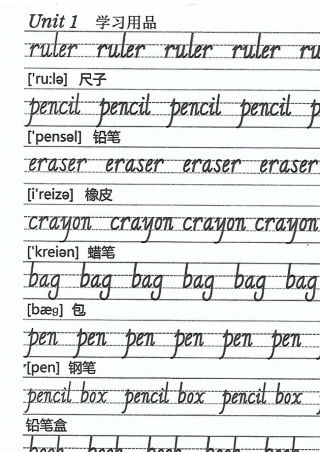 Unit 1 学习用品
ruler ruler ruler ruler ru
['ru:lə] 尺子
pencil pencil pencil pencil p
['pensəl] 铅笔
eraser eraser eraser eraser
[i'reizə] 橡皮
crayon crayon crayon crayon
['kreiən] 蜡笔
bag bag bag bag bag bag
[bæg] 包
pen pen pen pen pen pen
[pen] 钢笔
pencil box pencil box pencil box
铅笔盒